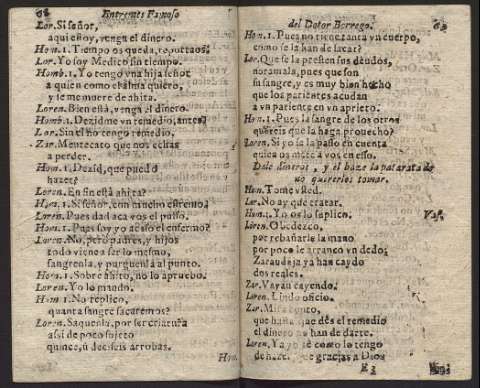 68 Entremes Famoso
Lor. Si señor,
aqui estoy, venga el dinero.
Hom. 1. Tiempo os queda, reportaos;
Lor. Yo soy Medico sin tiempo.
Homb. 1. Yo tengo vna hija señor
a quien como el alma quiero,
y se me muere de ahita.
Loren. Bien està, venga el dinero.
Homb. 1. Dezidme vn remedio, antes?
Lor. Sin el no tengo remedio,
Zar. Mentecato que nos echas
a perder.
Hom. 1. Dezid, que puedo
hazer?
Loren. En fin està ahita?
Hom. 1. Si señor, con mucho estremo,
Loren. Pues dad aca vos el pulso.
Hom. 1. Pues soy yo acaso el enfermo?
Loren. No, pero padres, y hijos
todo viene a ser lo mesmo,
sangrenla, y purguenla al punto.
Hom. 1. Sobre ahito, no lo apruebo.
Loren. Yo lo mando.
Hom. 1. No replico,
quanta sangre sacaremos?
Loren. Saquenla, por ser criatura
assi de poco sujeto
quinze, ù deziseis arrobas.
Hom.
del Dotor Borrego. 69
Hom. 1. Pues no tiene tanta vn cuerpo,
como se la han de sacar?
Lor. Que se la presten sus deudos,
noramala, pues que son
su sangre, y es muy bien hecho
que los parientes acudan
a vn pariente en vn aprieto.
Hom. 1. Pues la sangre de los otros
quereis que la haga prouecho?
Loren. Si yo se la passo en cuenta
quien os mete a vos en esso.
Dale dineros, y el haze la patarata de
no quererlos tomar.
Hom. Tome vsted.
Lor. No ay que tratar.
Hom. 1. Yo os lo suplico. Vase
Loren. Obedezco,
por rebañarle la mano
por poco le arranco vn dedo;
Zaraudaja ya han caydo
dos reales.
Zar. Vayan cayendo.
Loren. Lindo oficio.
Zar. Mira tonto,
que hasta que dès el remedio
el dinero no han de darte.
Loren. Ya yo sè como lo tengo
de hazer, que gracias a Dios
E 3